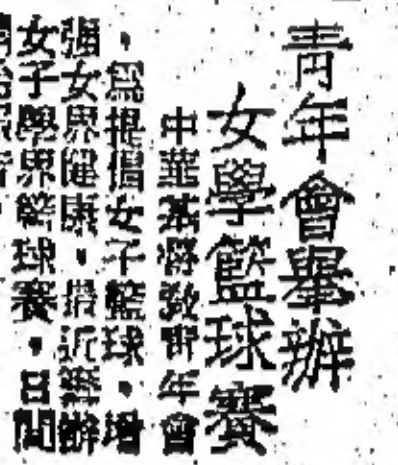 青年會舉辦
女學籃球賽
中華基督教青年會
，爲提倡女子籃球，增
强女界健康，最近舉辦
女子學界籃球賽，日間